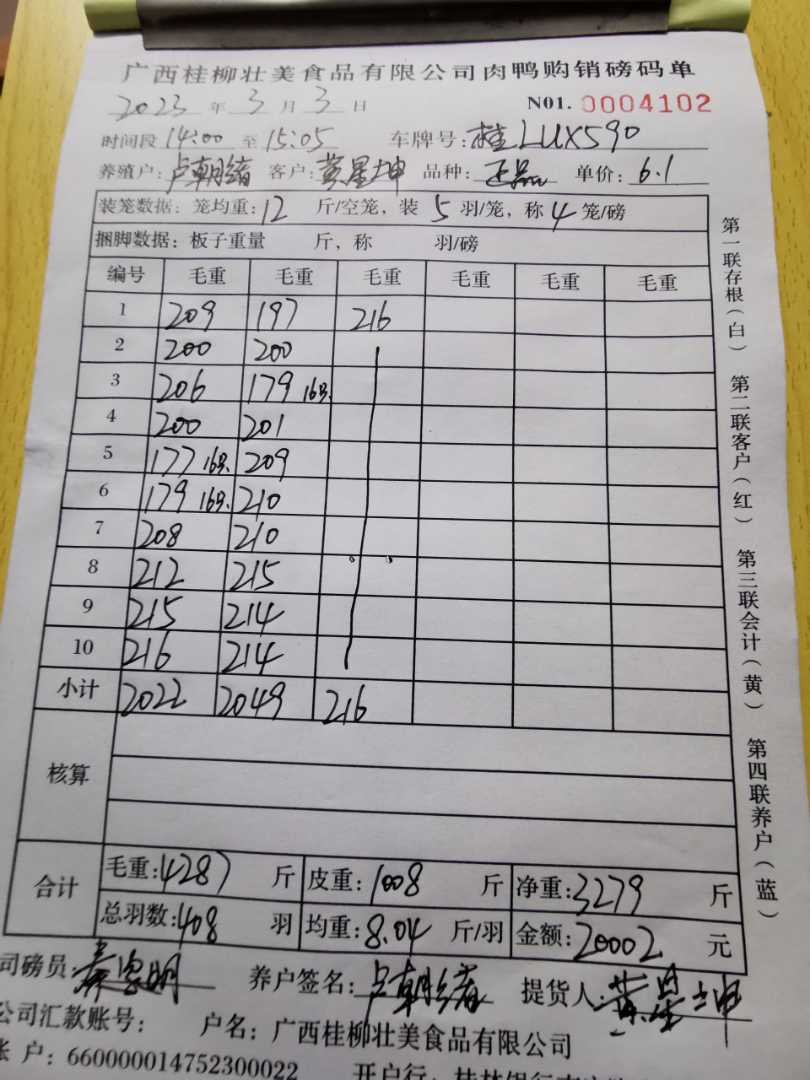 广西桂柳壮美食品有限公司肉鸭购销磅码单
2023年3月3日 N01. 0004102
时间段14:00至15:05 车牌号:桂LUX590
养殖户:卢朝绪 客户:黄星坤 品种:正品 单价:6.1
装笼数据: 笼均重:12 斤/空笼, 装 5 羽/笼, 称 4 笼/磅
捆脚数据: 板子重量 斤, 称 羽/磅
编号 毛重 毛重 毛重 毛重 毛重 毛重
1 209 197 216
2 200 200
3 206 179 16羽.
4 200 201
5 177 16羽. 209
6 179 16羽. 210
7 208 210
8 212 215
9 215 214
10 216 214
小计 2022 2049 216
核算
合计
毛重:4287 斤 皮重:1008 斤 净重:3279 斤
总羽数:408 羽 均重:8.04 斤/羽 金额:20002 元
司磅员: 养户签名:卢朝绪 提货人:黄星坤
公司汇款账号: 户名:广西桂柳壮美食品有限公司
账户:660000014752300022 开户行:桂林银行
第一联存根(白) 第二联客户(红) 第三联会计(黄) 第四联养户(蓝)